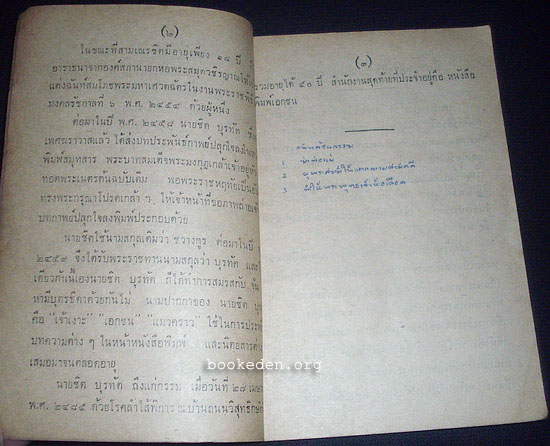 (๒)
ในขณะที่สามเณรชิตมีอายุเพียง ๑๘ ปี
อาราธนาจากองค์สภานายกหอพระสมุดวชิรญาณให้
แต่งฉันท์สมโภชพระมหาเศวตฉัตรในงานพระราชพิธี
มงคลรัชกาลที่ ๖ พ.ศ. ๒๔๕๔ ด้วยผู้หนึ่ง
ต่อมาในปี พ.ศ. ๒๔๕๘ นายชิต บุรทัต
เพศฆราวาสแล้ว ได้ส่งบทประพันธ์กาพย์ปลุกใจลง
พิมพ์สมุทสาร พระบาทสมเด็จพระมงกุฎเกล้าเจ้าอยู่หัว
ทอดพระเนตรต้นฉบับเดิม พอพระราชหฤทัยเป็น
ทรงพระกรุณาโปรดเกล้า ฯ ให้เจ้าหน้าที่ขอภาพถ่าย
บทกาพย์ปลุกใจลงพิมพ์ประกอบด้วย
นายชิตใช้นามสกุลเดิมว่า ชวางกูร ต่อมาในปี
๒๔๕๙ จึงได้รับพระราชทานนามสกุลว่า บุรทัต และ
เดียวกันนี้เองนายชิต บุรทัต ก็ได้ทำการสมรสกับ
หามีบุตรธิดาด้วยกันไม่ นามปากกาของ นายชิต
คือ "เจ้าเงาะ" "เอกชน" "แมวคราว" ใช้ในการประ
บทความต่าง ๆ ในหน้าหนังสือพิมพ์ และนิตยสาร
เสมอมาจนตลอดอายุ
นายชิต บุรทัต ถึงแก่กรรม เมื่อวันที่ ๒๗ เมษา
พ.ศ. ๒๔๘๕ ด้วยโรคลำไส้พิการ ณ บ้านถนนวิสุทธิกษัตริย์
(๓)
รวมอายุได้ ๕๐ ปี สำนักงานสุดท้ายที่ประจำอยู่คือ หนังสือ
พิมพ์เอกชน
1
2
3
bookeden.org